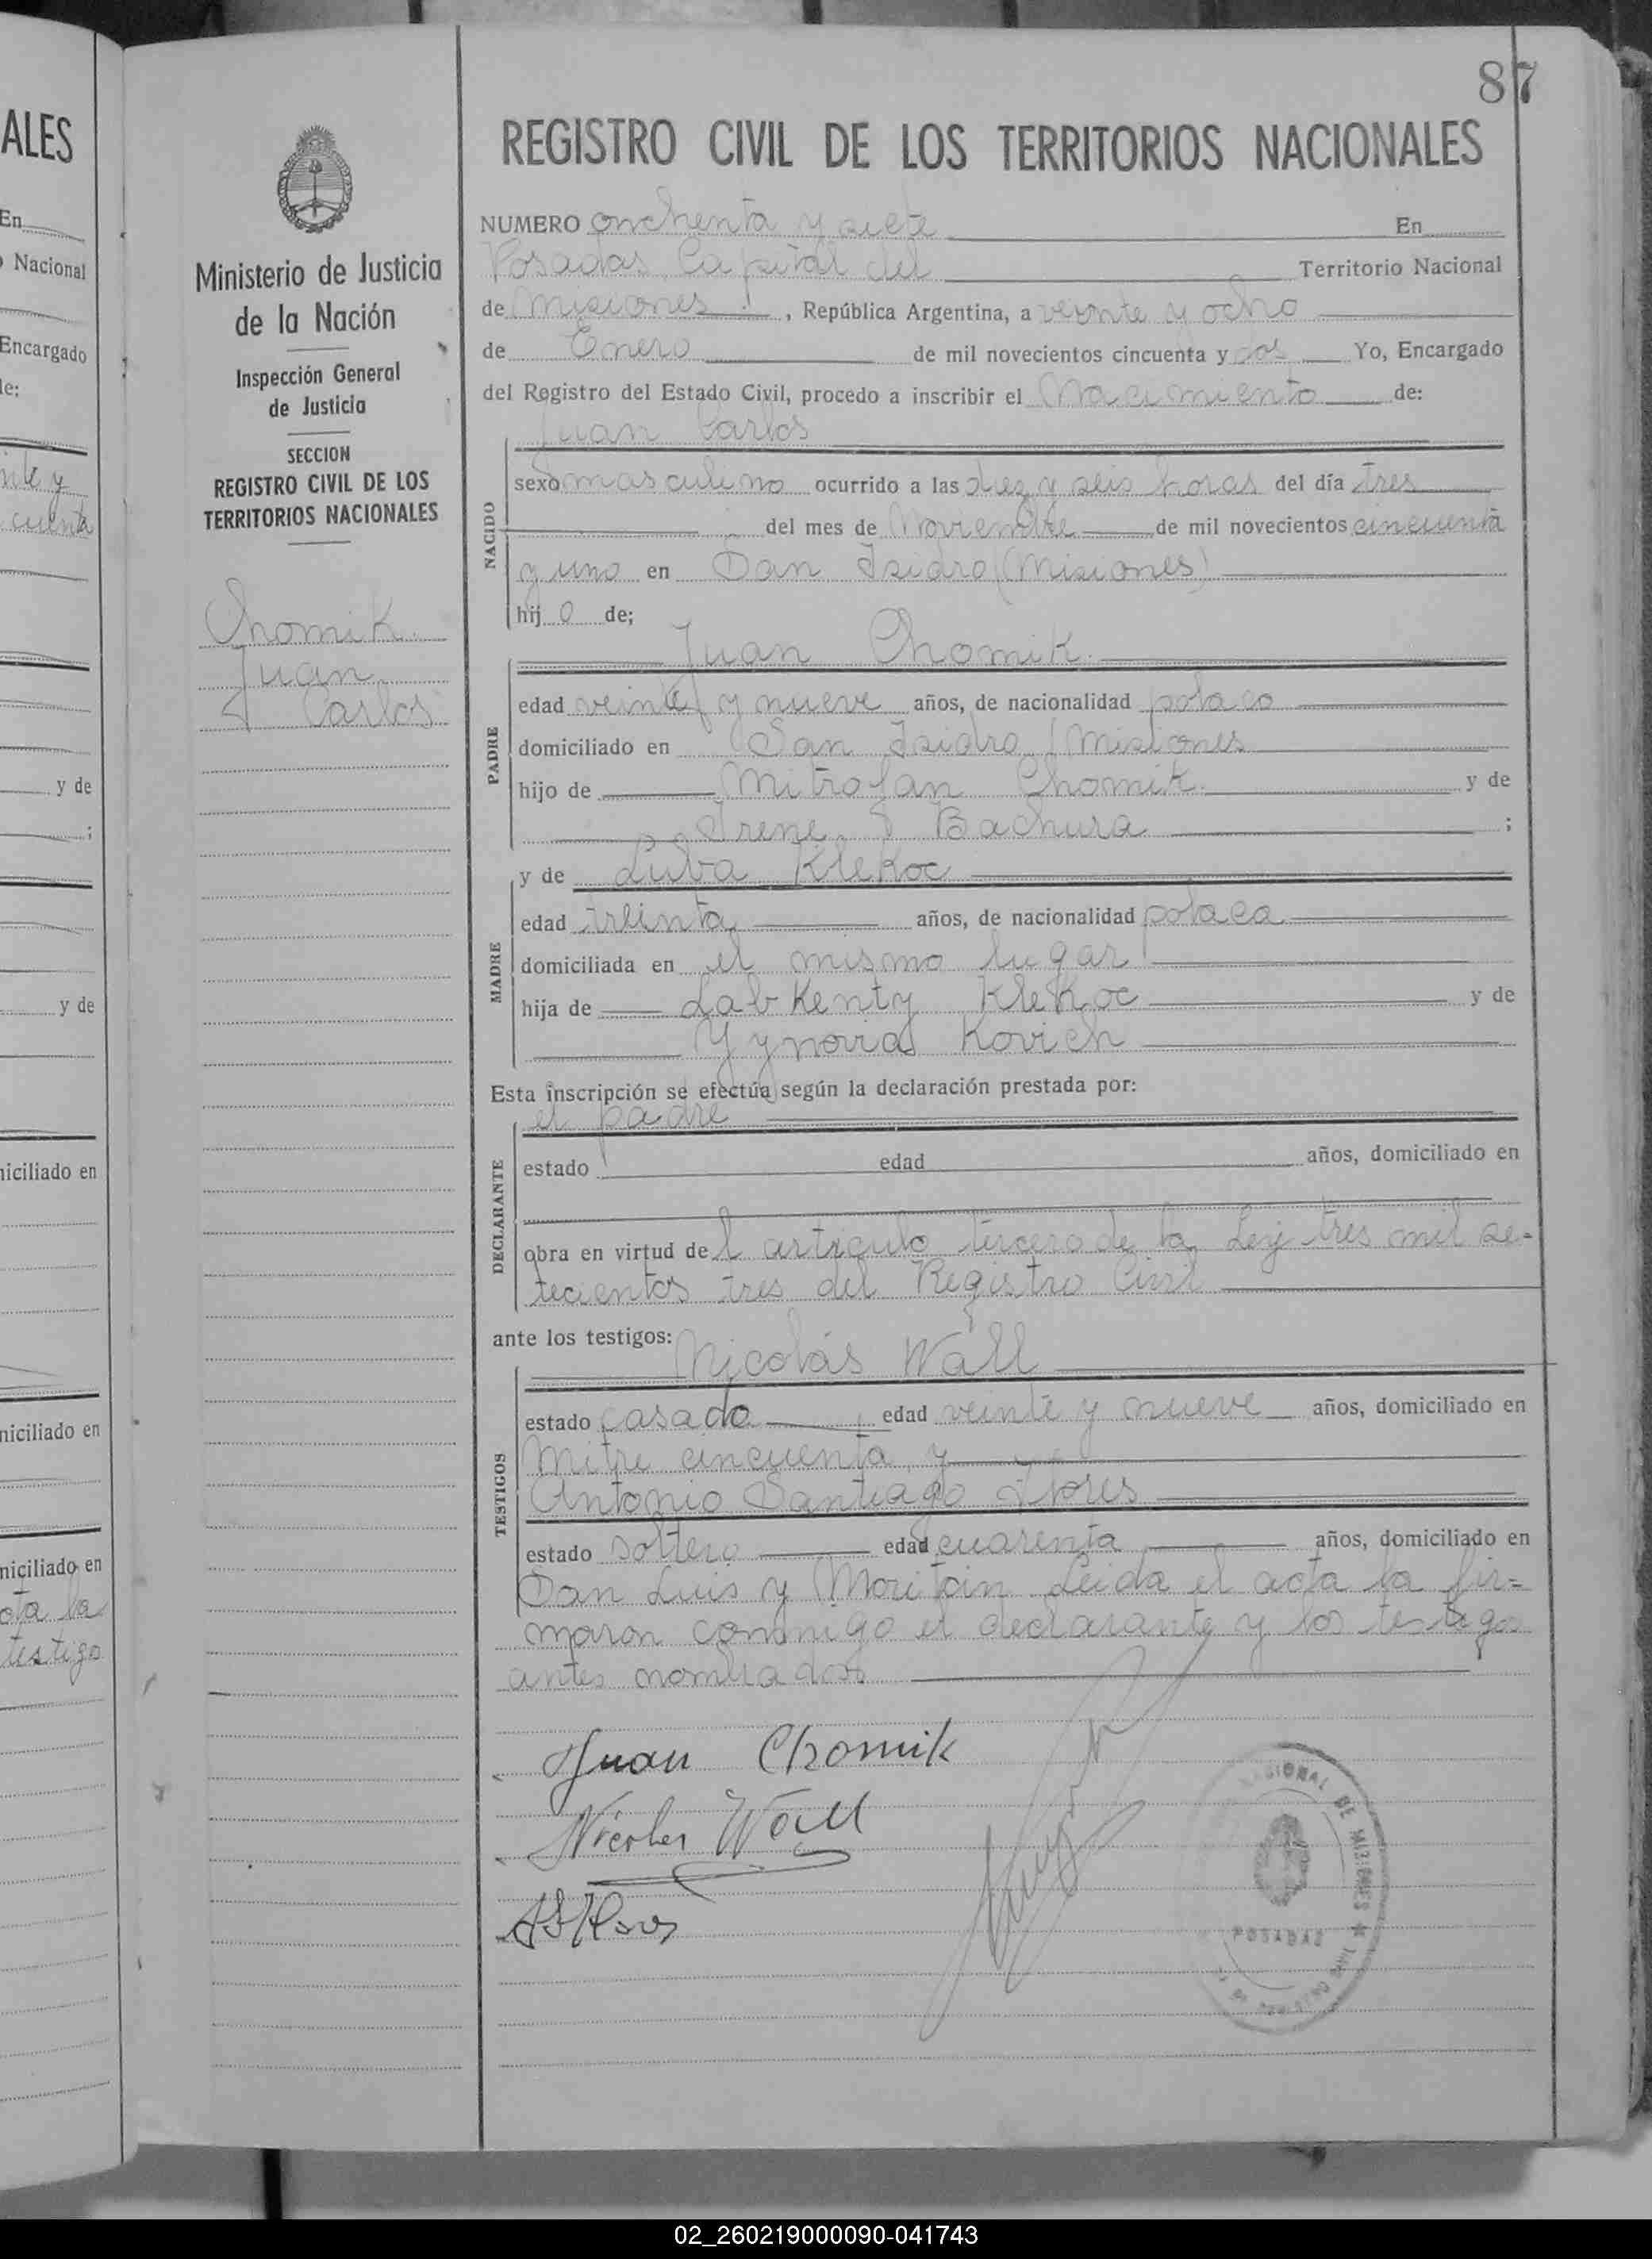 87
REGISTRO CIVIL DE LOS TERRITORIOS NACIONALES
NUMERO onchenta y siete En
Posadas Capital del Territorio Nacional
de Misiones, República Argentina, a veinte y ocho
de Enero de mil novecientos cincuenta y dos Yo, Encargado
del Registro del Estado Civil, procedo a inscribir el Nacimiento de:
Juan Carlos
NACIDO
sexo masculino ocurrido a las diez y seis horas del día tres
del mes de Noviembre de mil novecientos cincuenta
y uno en San Isidro (Misiones)
hijo de;
Juan Chomik
PADRE
edad veinte y nueve años, de nacionalidad polaco
domiciliado en San Isidro (Misiones
hijo de Mitrofan Chomik y de
Irene Bachura ;
y de Luba Klekoc
MADRE
edad treinta años, de nacionalidad polaca
domiciliada en el mismo lugar
hija de Labkenty Klekoc y de
Yynovia Kovich
Esta inscripción se efectúa según la declaración prestada por:
el padre
DECLARANTE
estado edad años, domiciliado en
obra en virtud del articulo tercero de la Ley tres mil se-
tecientos tres del Registro Civil
ante los testigos: Nicolás Wall
TESTIGOS
estado casado edad veinte y nueve años, domiciliado en
Mitre cincuenta y
Antonio Santiago Flores
estado soltero edad cuarenta años, domiciliado en
San Luis y Moritán Leida el acta la fir=
maron conmigo el declarante y los testigos
antes nombrados
Juan Chomik
Nicolas Wall
AS Flores
NACIONAL DE MISIONES
POSADAS
Ministerio de Justicia
de la Nación
Inspección General
de Justicia
SECCION
REGISTRO CIVIL DE LOS
TERRITORIOS NACIONALES
Chomik
Juan
Carlos
ALES
En
Nacional
Encargado
de:
cuenta
y de
;
y de
niciliado en
niciliado en
niciliado en
la
testigo
02_260219000090-041743